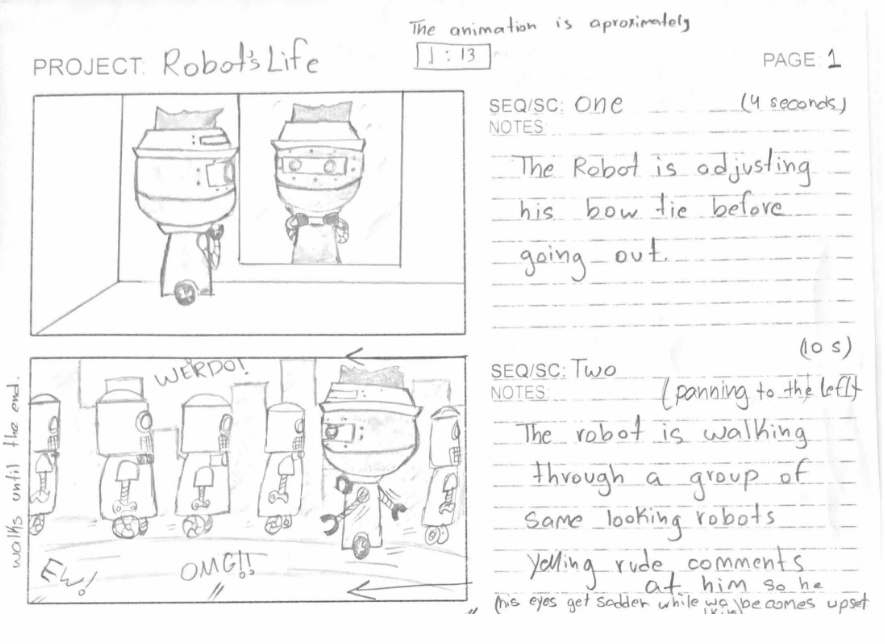 The animation is aproximately
1:13
PROJECT: Robot's Life
PAGE 1
SEQ/SC: one (4 seconds)
NOTES:
The Robot is adjusting
his bow tie before
going out.
WEIRDO!
EW!
OMG!!
walks until the end.
(10 s)
SEQ/SC: Two
NOTES: (panning to the left)
The robot is walking
through a group of
same looking robots
yelling rude comments
at him so he
(his eyes get sadder while becomes upset